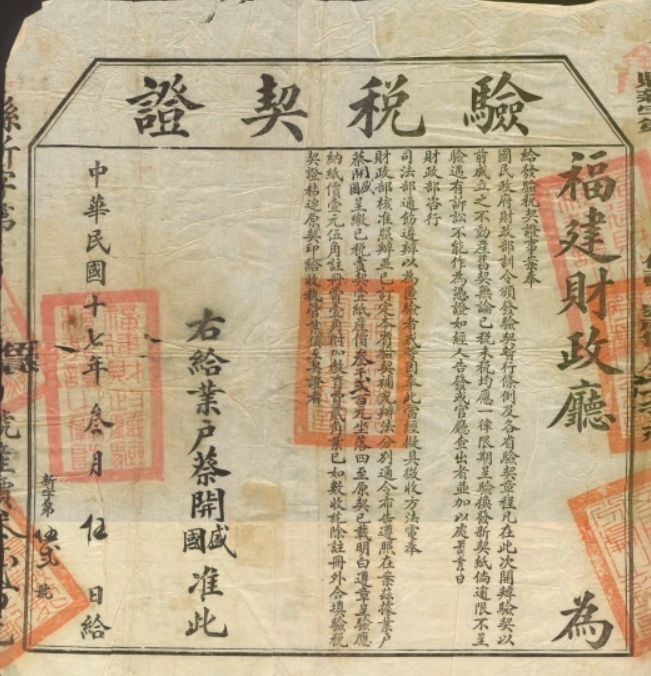 驗税契證
福建財政廳 為
給發驗税契證事案奉
國民政府財政部訓令頒發驗契暫行條例及各省驗契章程凡在此次開辦驗契以
前成立之不動產舊契無論已税未税均應一律限期呈驗換發新契紙倘逾限不呈
驗遇有訴訟不能作為憑證如經人告發或官廳查出者並加以處罰等日
財政部咨行
司法部通飭遵辦以為匿驗者戒等因奉此當經擬具徵收方法電奉
財政部核准照辦並已訂定今省驗契補充辦法分別通令布告遵照在案茲據業戶
蔡開國盛呈繳已税賣契壹紙產價叁千貳百元坐落四至原契已載明白遵章呈驗應
納紙價壹元伍角註冊費壹角附加教育費貳角業已如數收訖除註冊外合填驗税
契證粘連原契印給收執管業須至契證者
右給業戶蔡開國盛准此
中華民國十七年叁月伍日給
新字第 號
縣新字第
號產價